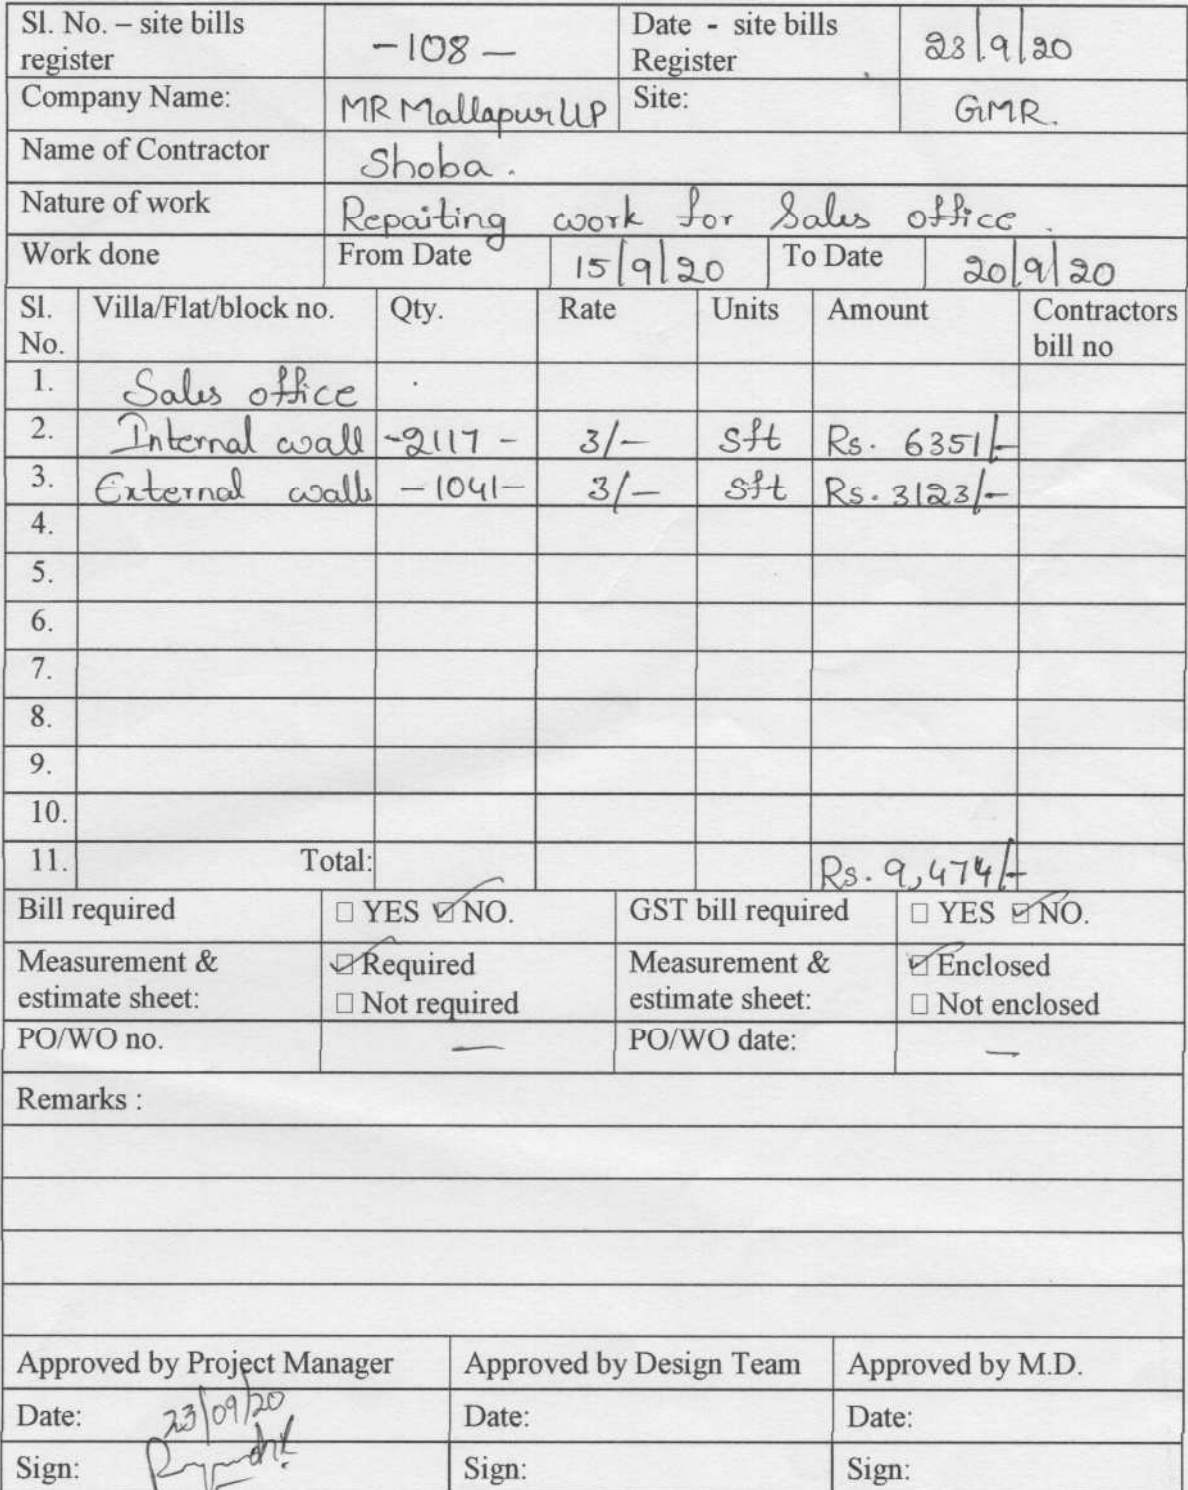 Sl. No. – site bills register -108- Date - site bills Register 23/9/20
Company Name: MR Mallapur LLP Site: GMR.
Name of Contractor Shoba.
Nature of work Repaiting work for Sales office.
Work done From Date 15/9/20 To Date 20/9/20
Sl. No. Villa/Flat/block no. Qty. Rate Units Amount Contractors bill no
1. Sales office
2. Internal wall -2117- 3/- sft Rs. 6351/-
3. External walls -1041- 3/- sft Rs. 3123/-
4.
5.
6.
7.
8.
9.
10.
11. Total: Rs. 9,474/-
Bill required ☐ YES ☑ NO. GST bill required ☐ YES ☑ NO.
Measurement & estimate sheet: ☑ Required ☐ Not required Measurement & estimate sheet: ☑ Enclosed ☐ Not enclosed
PO/WO no. — PO/WO date: —
Remarks :
Approved by Project Manager Approved by Design Team Approved by M.D.
Date: 23/09/20 Date: Date:
Sign: Sign: Sign: